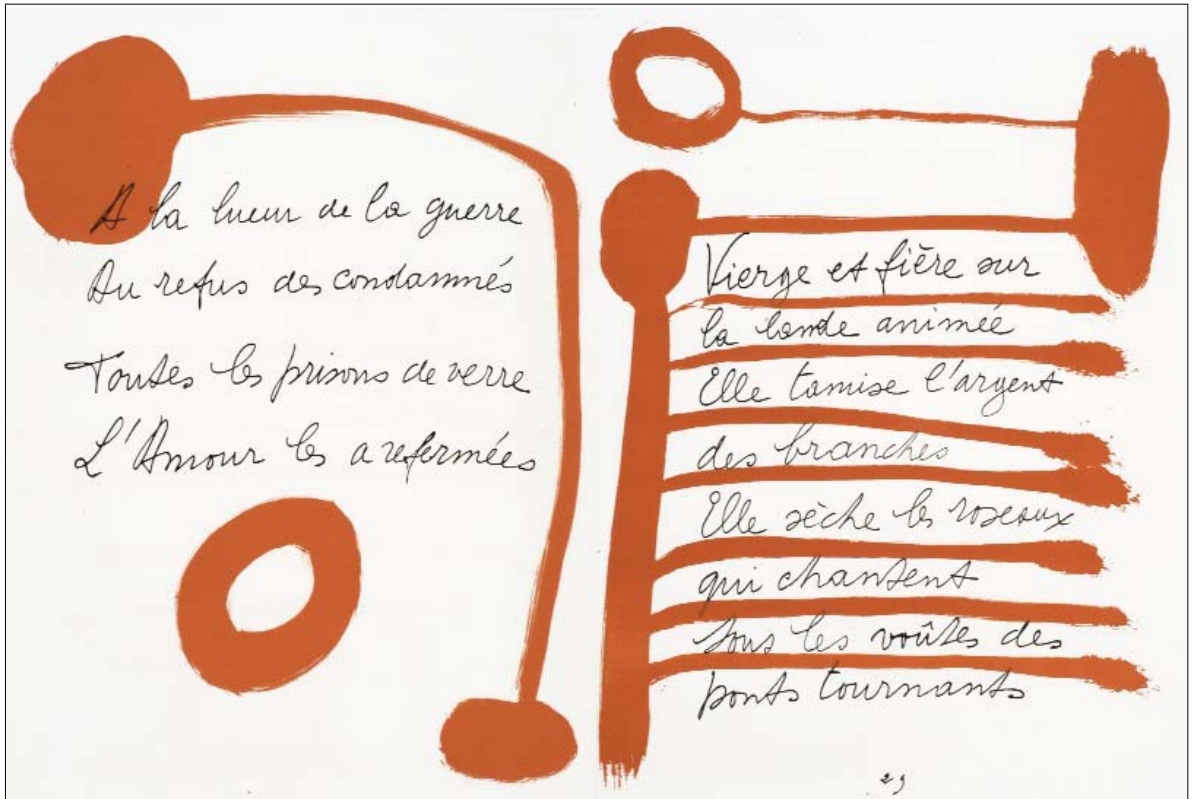 A la lueur de la guerre
Au refus des condamnés
Toutes les prisons de verre
L'Amour les a refermées
Vierge et fière sur
la lande animée
Elle tamise l'argent
des branches
Elle sèche les roseaux
qui chantent
sous les voûtes des
ponts tournants
29